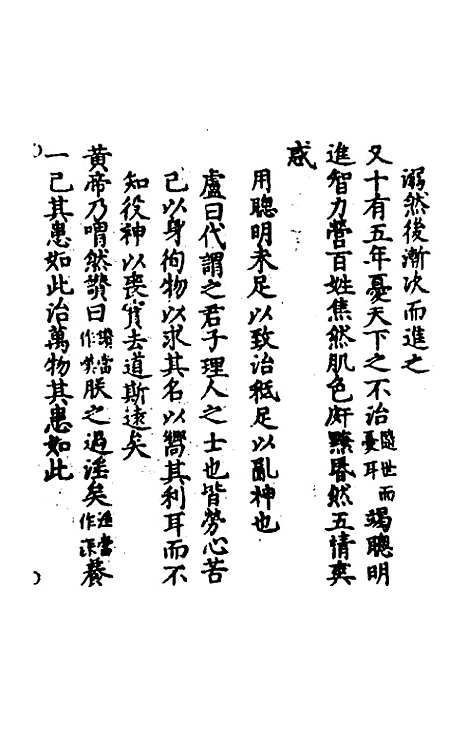 溺然後漸次而進之
又十有五年憂天下之不治隨世而憂耳竭聰明
進智力營百姓焦然肌色皯黣昏然五情爽
惑
用聰明未足以致治祗足以亂神也
盧曰代謂之君子理人之士也皆勞心苦
己以身徇物以求其名以嚮其利耳而不
知役神以喪實去道斯遠矣
黃帝乃喟然讚曰讚當作歎朕之過淫矣淫當作深養
一己其患如此治萬物其患如此